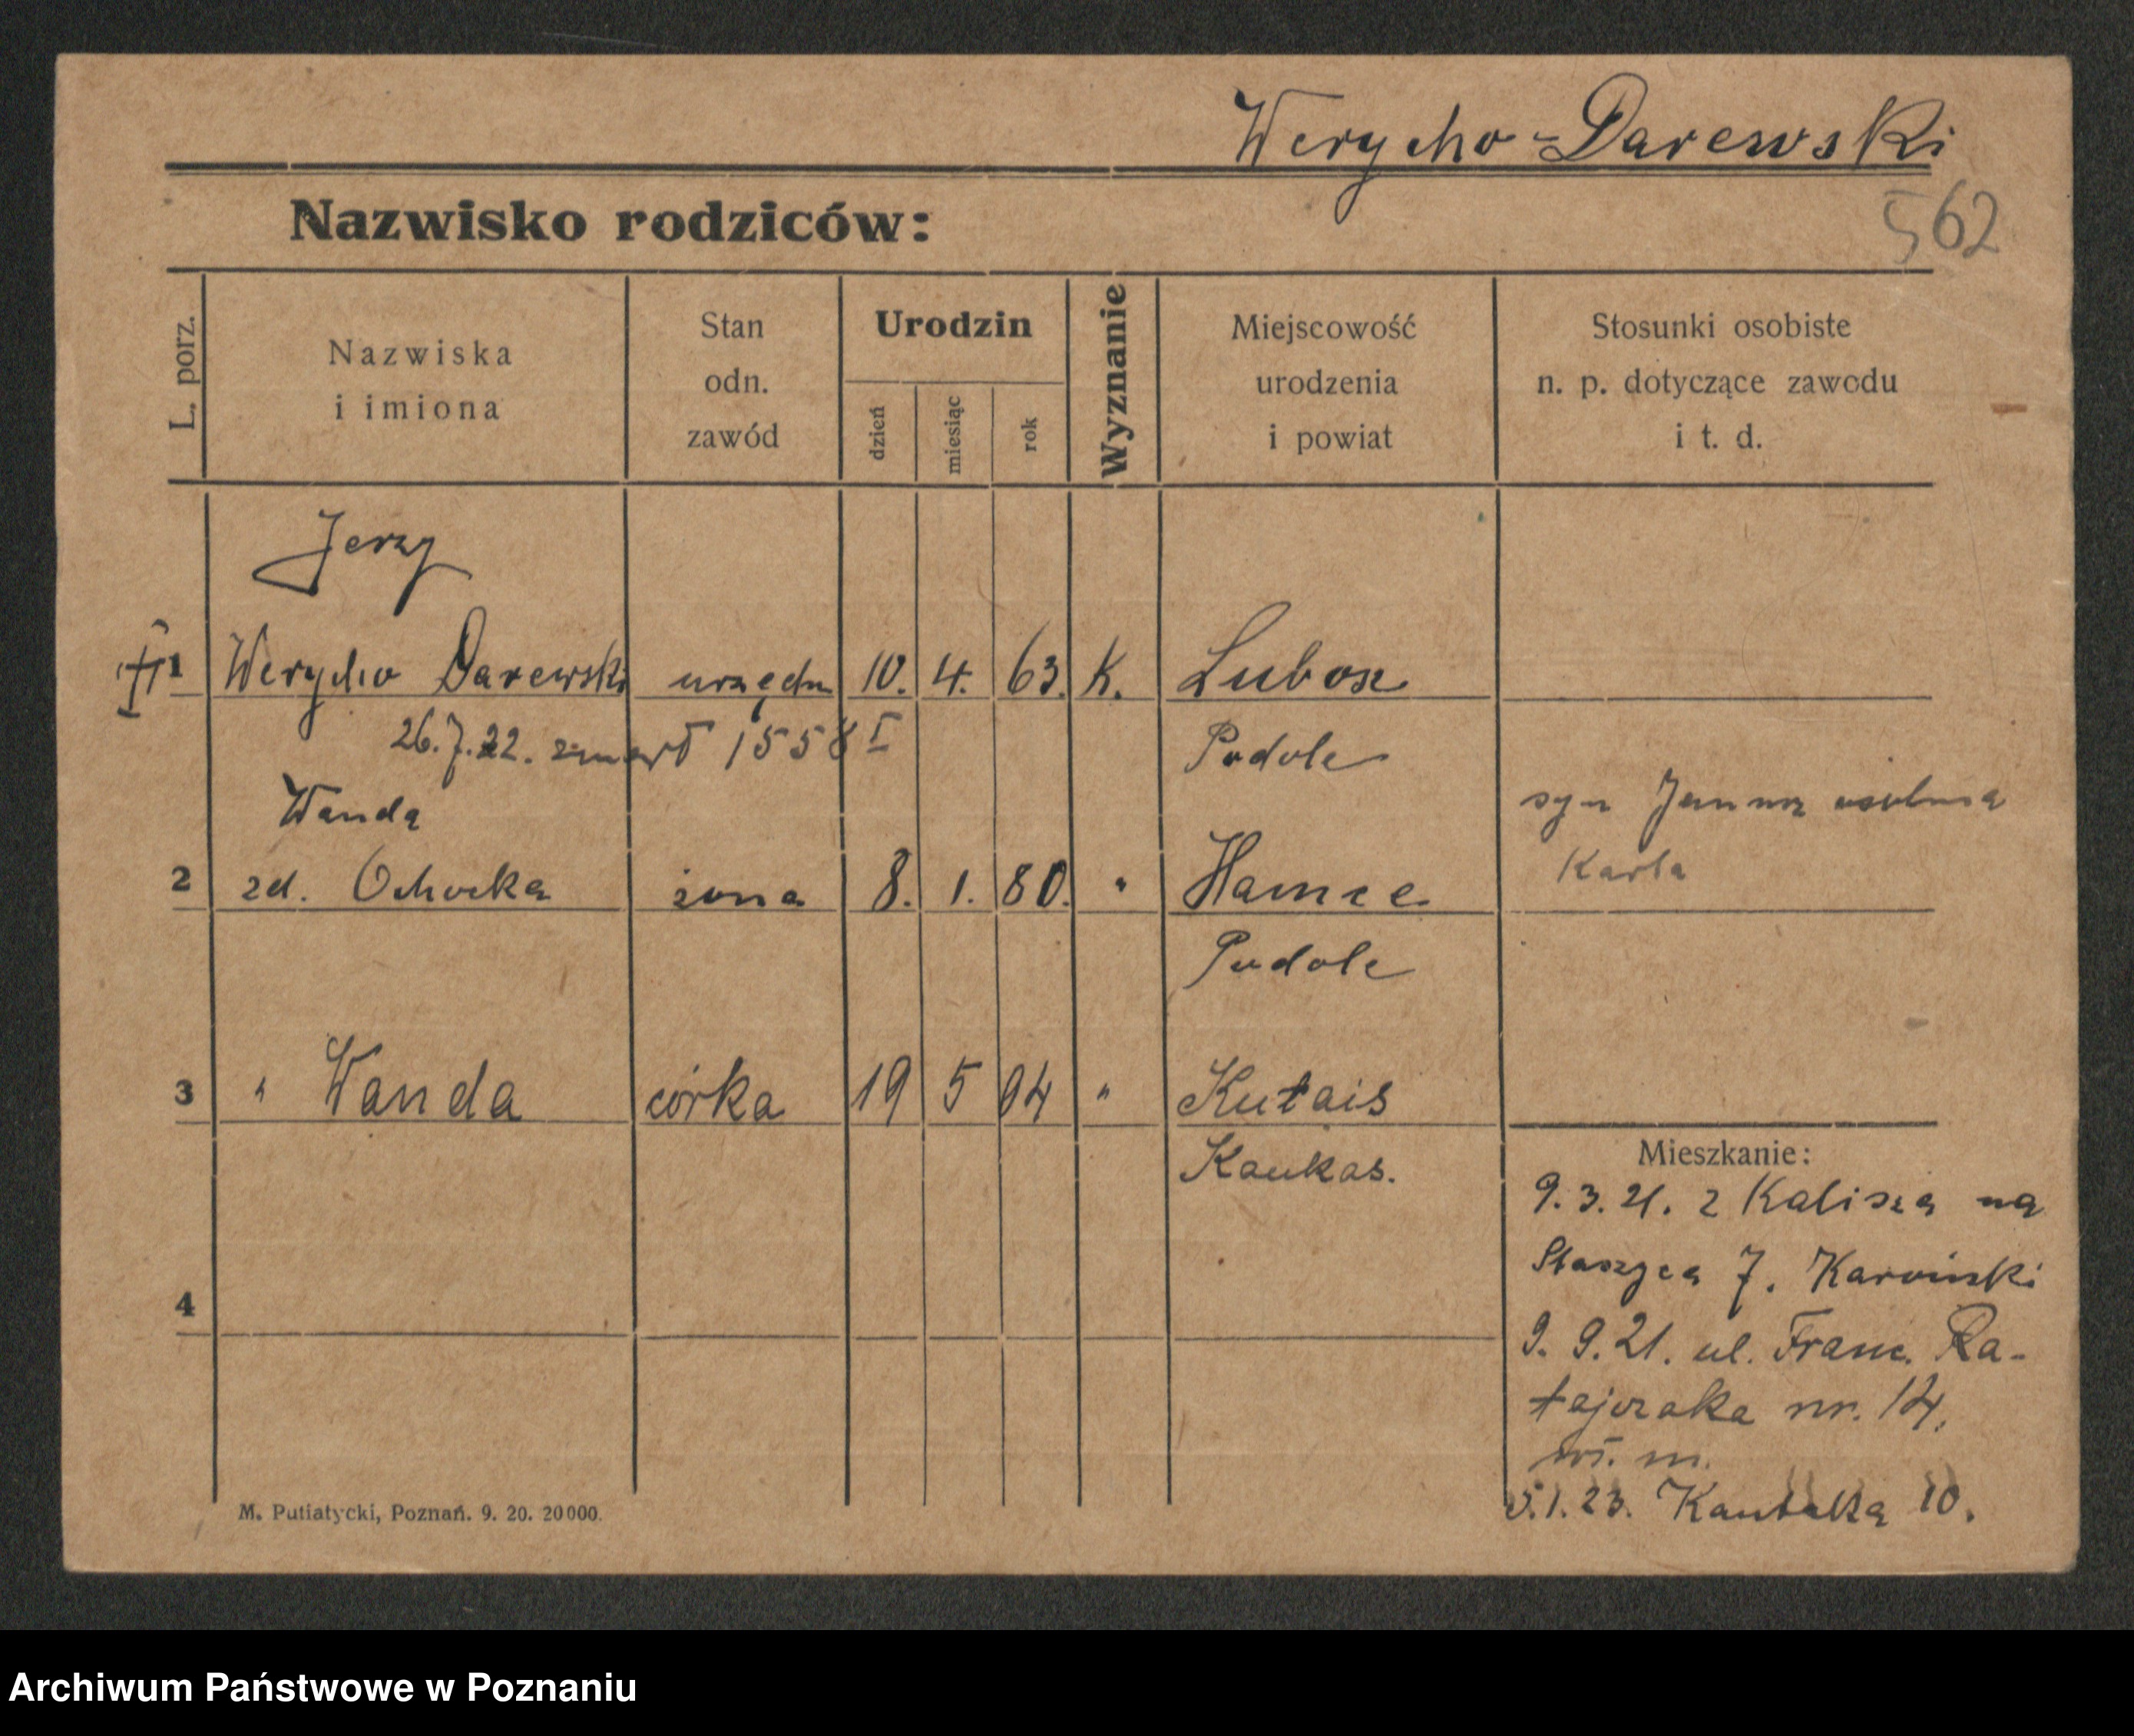 Werycho-Darewski
562
Nazwisko rodziców:
L. porz.
Nazwiska
i imiona
Stan
odn.
zawód
Urodzin
dzień
miesiąc
rok
Wyznanie
Miejscowość
urodzenia
i powiat
Stosunki osobiste
n. p. dotyczące zawodu
i t. d.
Jerzy
1 Werycho Darewski urzędn 10. 4. 63. K. Lubosz
26.7.22. zmarł 1558 I
Podole
Wanda
syn Janusz osobna
Karta
2 zd. Ochocka żona 8. 1. 80. " Hamce
Podole
3 " Wanda córka 19 5 04 " Kutais
Kaukas.
4
Mieszkanie:
9.3.21. z Kalisza na
Staszyca 7. Karwiński
9.9.21. ul. Franc. Ra-
tajczaka nr. 14.
wł. m.
5.1.23. Kantaka 10.
M. Putiatycki, Poznań. 9. 20. 20000.
Archiwum Państwowe w Poznaniu